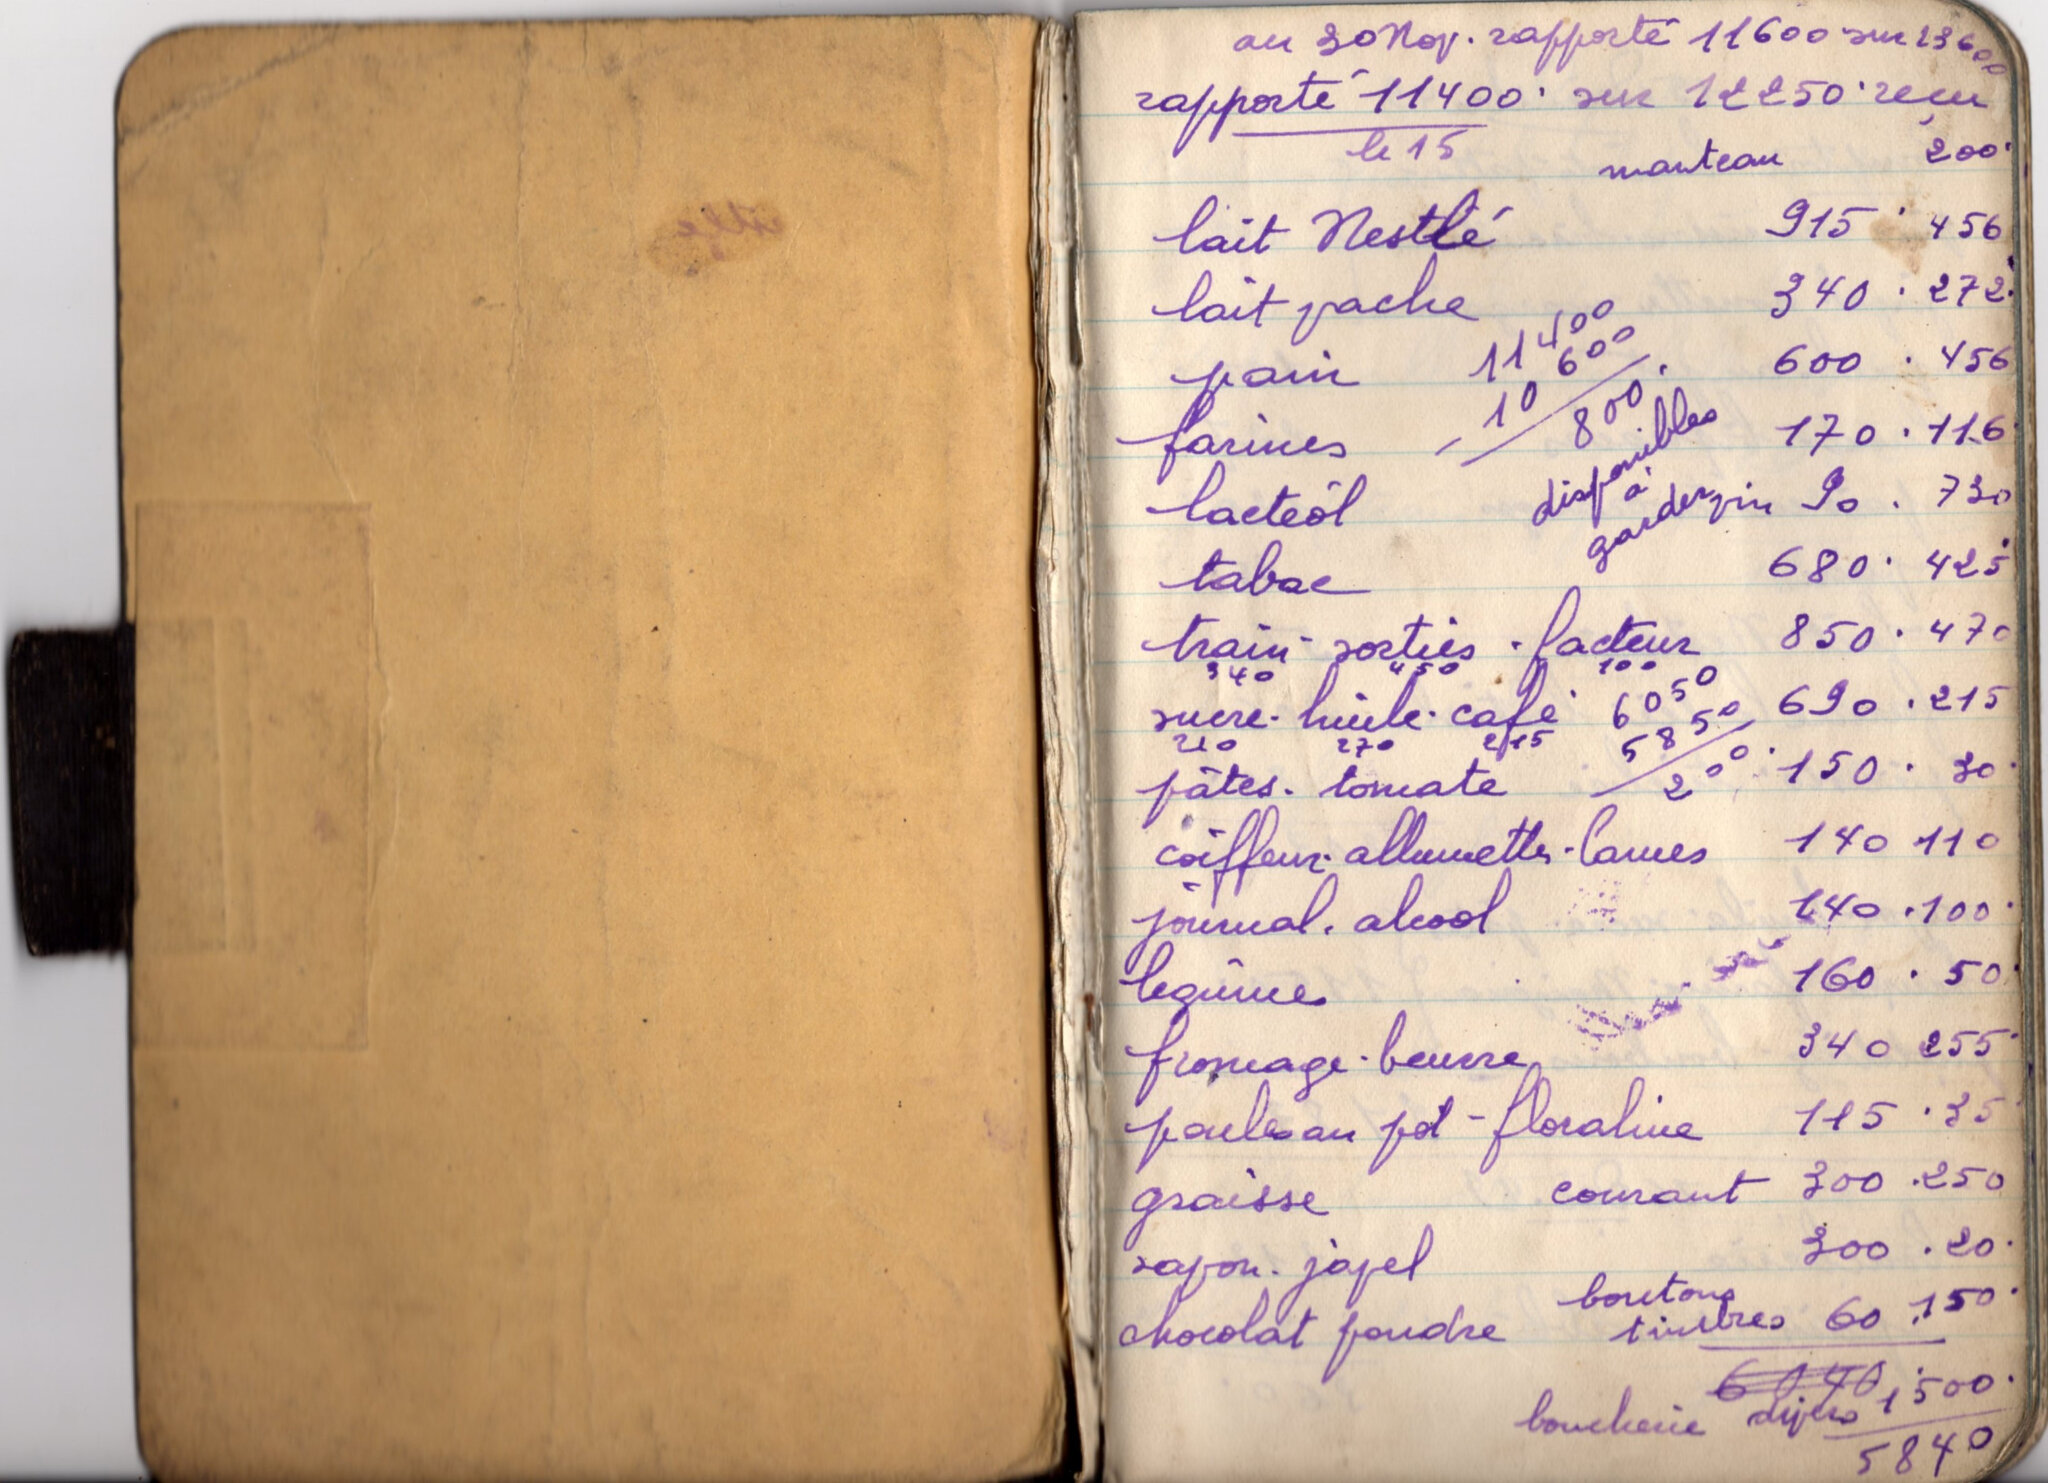 au 30 Nov. rapporté 11600 sur 23600
rapporté 11400. sur 12250. reçu
le 15
manteau 200.
lait Nestlé 915. 456
lait vache 340. 272.
pain 600. 456
11400
10 600
800.
disponibles
à
garder
farines 170. 116
lactéol vin 90. 730
tabac 680. 425
train - sorties. facteur 850. 470
340 450 100
sucre. huile. café 690. 215
210 270 215
6050
5850
200.
pâtes. tomate 150. 30.
coiffeur. allumettes. lames 140 110
journal. alcool 140. 100.
legume 160. 50.
fromage. beurre 340 255.
poule au pot - floraline 115. 35
graisse courant 300. 250
savon. javel 300. 20.
chocolat poudre boutons
timbres 60. 150.
6040 1500.
boucherie divers
5840